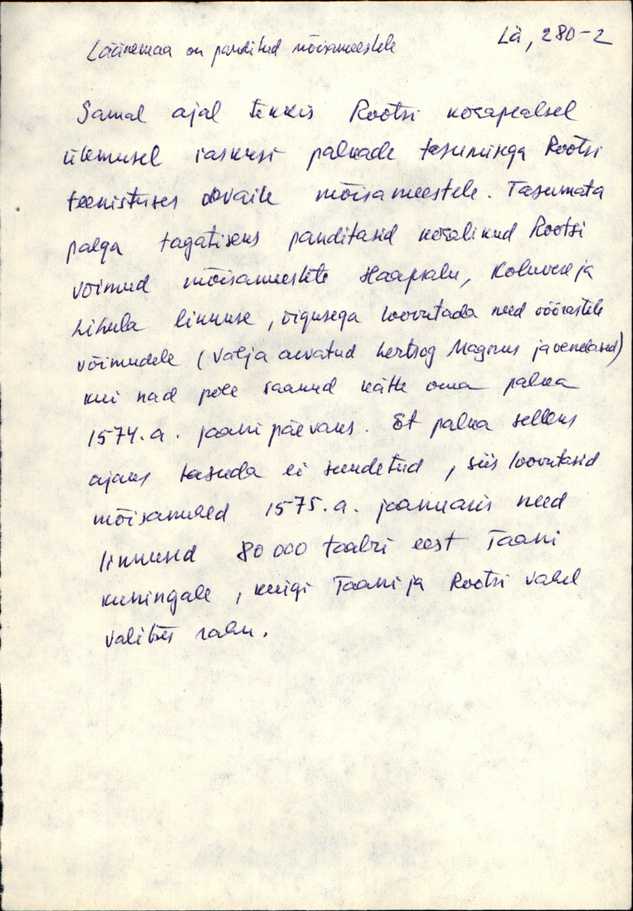 Läänemaa on panditud mõisameestele
Lä, 280-2
Samal ajal tekkis Rootsi kõrgealsel
ülemusel raskusi palkade tasumisega Rootsi
teenistuses olevaile mõisameestele. Tasumata
palga tagatiseks panditasid kohalikud Rootsi
võimud mõisameestele Haapsalu, Koluvere ja
Lihula linnuse, õigusega loovutada need võõrastele
võimudele (välja arvatud hertsog Magnus ja venelased)
kui nad pole saanud kätte oma palka
1574. a. jaanipäevaks. Et palka selleks
ajaks tasuda ei suudetud, siis loovutasid
mõisamehed 1575. a. jaanuaris need
linnused 80 000 taalri eest Taani
kuningale, kuigi Taani ja Rootsi vahel
valitses rahu.